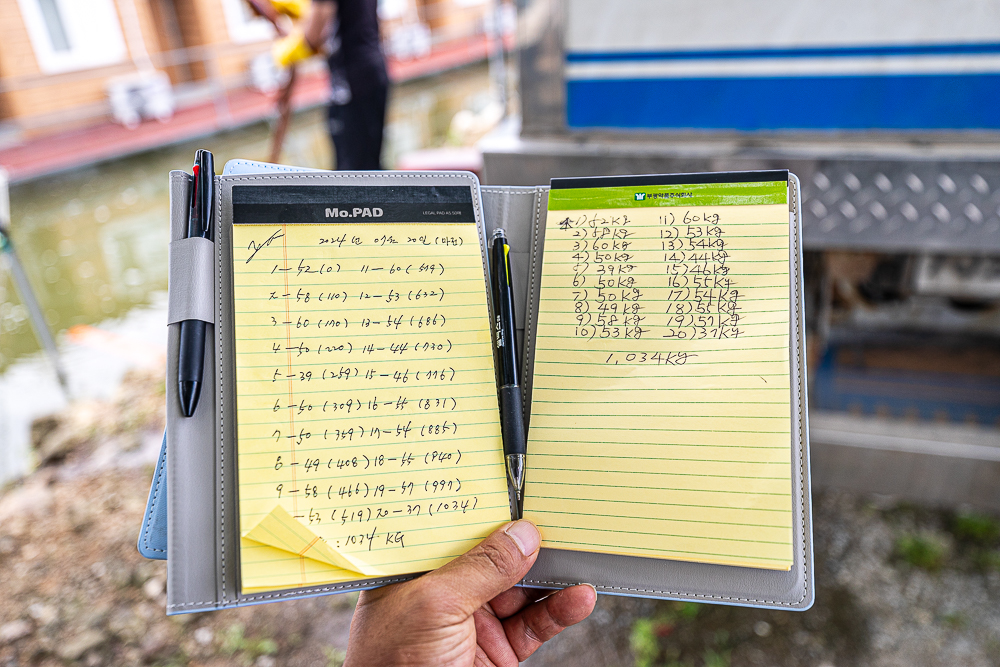 Mo.PAD
LEGAL PAD A5 50매
2024년 07월 20일 (마전)
1-52(0) 11-60(579)
2-58(110) 12-53(632)
3-60(170) 13-54(686)
4-50(220) 14-44(730)
5-39(259) 15-46(776)
6-50(309) 16-55(831)
7-50(359) 17-54(885)
8-49(408) 18-55(940)
9-58(466) 19-57(997)
-53(519) 20-37(1034)
:1034 KG
우성약품주식회사
1)52kg 11)60kg
2)58kg 12)53kg
3)60kg 13)54kg
4)50kg 14)44kg
5)39kg 15)46kg
6)50kg 16)55kg
7)50kg 17)54kg
8)49kg 18)55kg
9)58kg 19)57kg
10)53kg 20)37kg
1,034kg